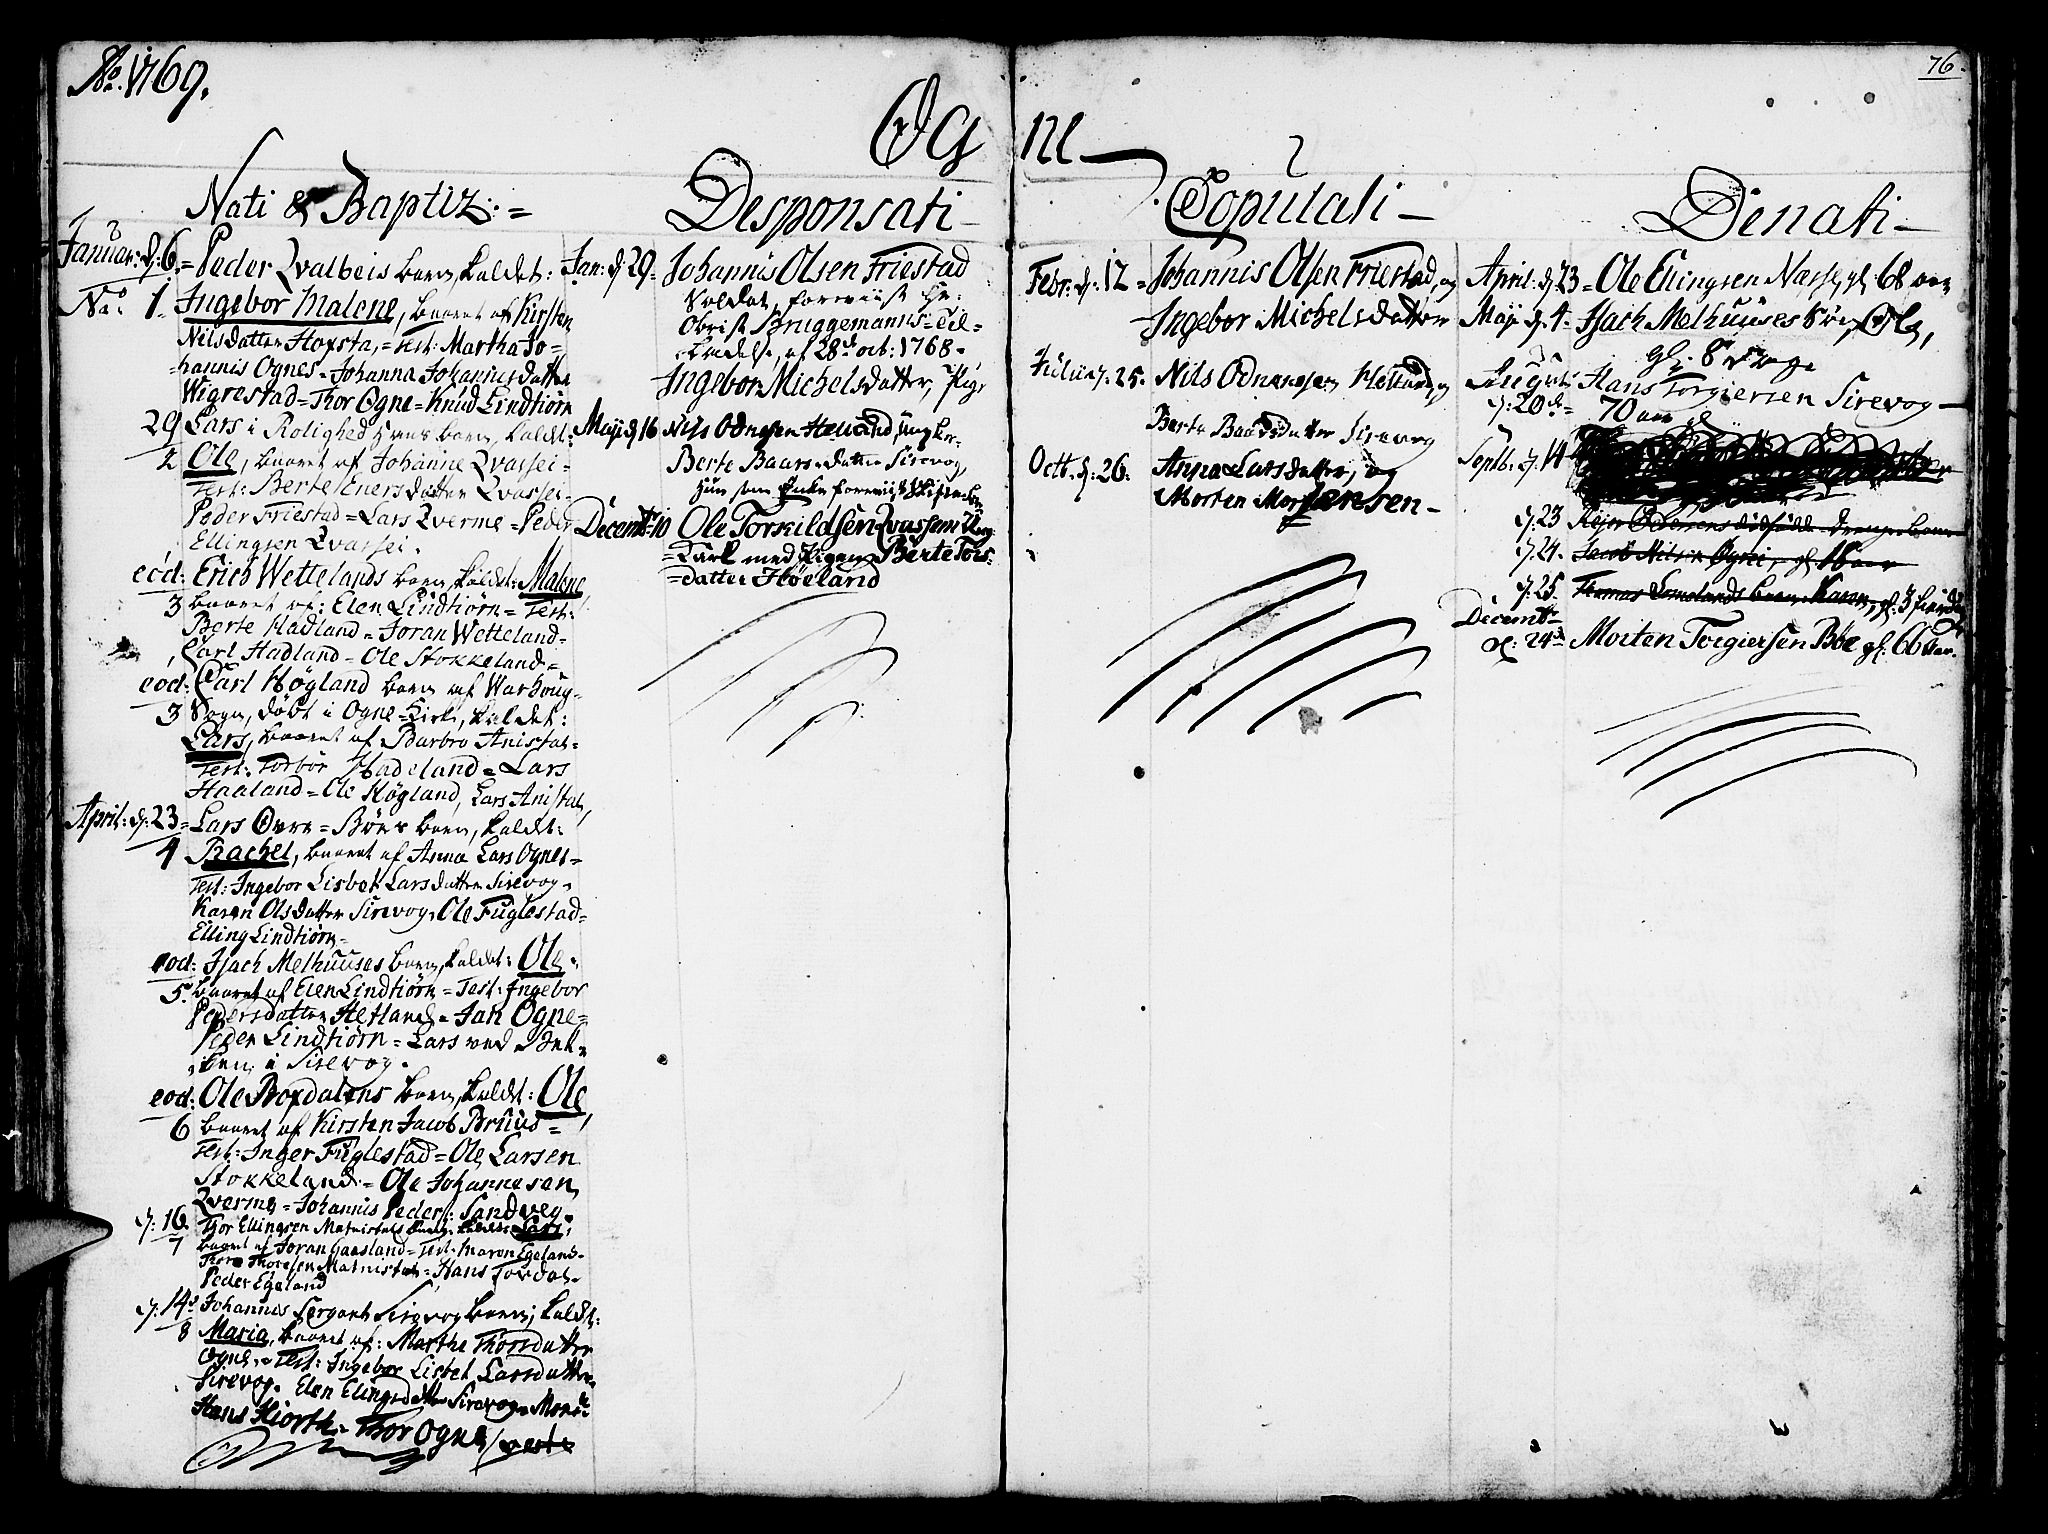 Ao. 1769.
76.
Og ne
Nati & Baptiz: =
Januar: d: 6. = Peder Qvalbeis barn, kaldet:
No. 1. Ingebor Malene, baaret af Kirsten
Nilsdatter Hopsta, = Test: Martha Jo=
hannis Ognes = Johanna Johannisdatter
Wigrestad = Thor Ogne = Knud Lindtiørn
29 Lars i Rolighed barn, kaldt:
2 Ole, baaret af Johanne Qvassei =
Test: Berte Enersdatter Qvassei =
Peder Friestad = Lars Qverme = Peder
Ellingsen Qvassei.
eod: Erich Wettelands barn, kaldet: Malene
3 baaret af: Elen Lindtiørn = Test:
Berte Hadland = Joran Wetteland =
Carl Hadland = Ole Stokkeland =
eod: Carl Høgland barn af Warhoug=
3 Sogn, døbt i Ogne = Kirke, kaldet:
Lars, baaret af Barbro Anistal =
Test: Torbor Hadeland = Lars
Haaland = Ole Høgland, Lars Anistal,
April: d: 23 = Lars Øvre = Bøes barn, kaldt:
4 Rachel, baaret af Anna Lars Ognes =
Test: Ingebor Lisbet Larsdatter Sirevog =
Karen Olsdatter Sirevog, Ole Fuglestad =
Elling Lindtiørn =
eod: Isach Melhuuses barn, kaldet: Ole =
5. baaret af Elen Lindtiørn = Test: Ingebor
Pedersdatter Hetland = Jan Ogne =
Peder Lindtiørn = Lars ved Bek=
ken i Sirevog.
eod: Ole Brondalens barn, kaldet: Ole
6 baaret af Kirsten Jacob Bruus =
Test: Inger Fuglestad = Ole Larsen
Stokkeland = Ole Johannesen
Qverme = Johannis Peders: Sandveg
d: 16 Thor Ellingsen Matnistals barn, kaldet: Lars,
7 baaret af Joran Gaasland = Test: Maren Egeland =
Thore Thoresen Matnistal = Hans Tordal =
Peder Egeland
d: 14 Johannes Sergant Sirevog barn, kaldt:
8 Maria, baaret af: Marthe Thorsdatter
Ogne = Test: Ingebor Lisbet Larsdatter
Sirevog. Elen Elingsdatter Sirevog = Mons:
Hans Hiorth = Thor Ogne
Desponsati
Jan: d 29 = Johannis Olsen Friestad
Soldat, foreviist Hr:
Obrist Bruggemanns = Til=
ladelse, af 28de oct: 1768 =
Ingebor Michelsdatter, Pige
Maji d 16 Nils Odnesen Helland, ungkar =
Berte Baarsdatter Sirevog,
hun som Enke foreviist
Decembr: 10 Ole Torkildsen Qvassem Ung
= Karl med Pigen Berte Tors:
= datter Høeland
Copulati
Febr: d: 12 = Johannis Olsen Friestad, og
Ingebor Michelsdatter
Julii d: 25. Nils Odnensen Helland, og
Berte Baarsdatter Sirevog
Octb. d: 26. Anna Larsdatter, og
Morten Mortensen =
Denati
April: d: 23 = Ole Ellingsen Næsse, gl: 68 aar
Maji d: 4 = Isach Melhuuses Søn, Ole,
gl: 8 Dage
August: Hans Torgiersen Sirevog
d: 20de = 70 aar
Septb. d: 14
d: 23 Rejer Pedersens dødfødde drenge barn
d: 24. Jacob Nilsen Ogne, gl 16 aar
d: 25. Thomas Lomelands barn Karen, gl: 3
Decembr:
d: 24de Morten Torgiersen Bøe gl: 66 aar.